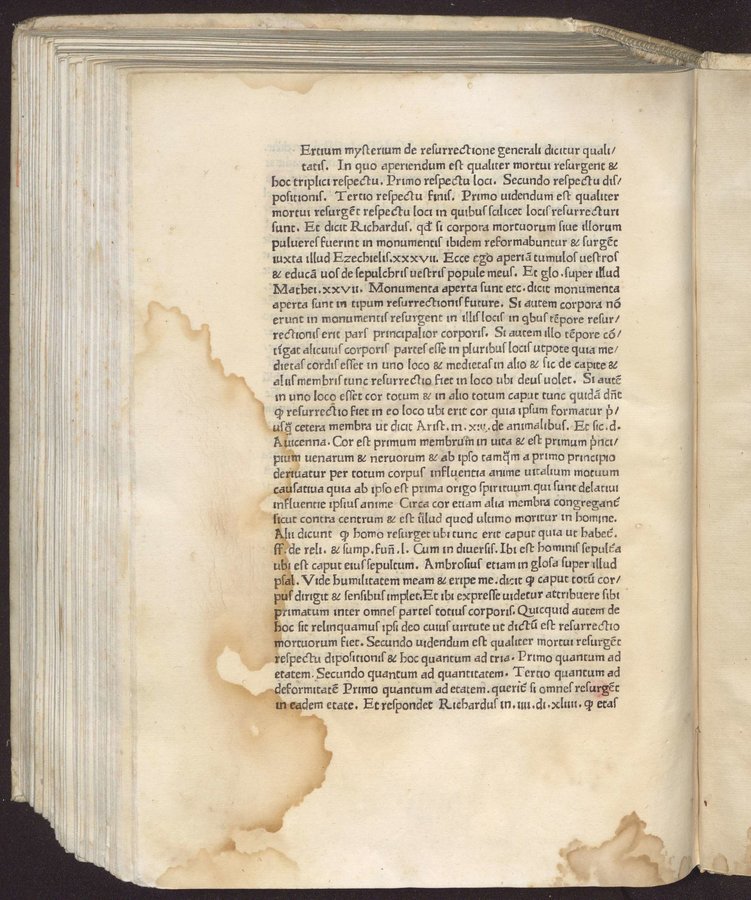 Ertium mysterium de resurrectione generali dicitur quali/
tatis. In quo aperiendum est qualiter mortui resurgent &
hoc triplici respectu. Primo respectu loci. Secundo respectu dis/
positionis. Tertio respectu finis. Primo uidendum est qualiter
mortui resurgẽt respectu loci in quibus scilicet locis resurrecturi
sunt. Et dicit Richardus. qđ si corpora mortuorum siue illorum
pulueres fuerint in monumentis ibidem reformabuntur & surgẽt
iuxta illud Ezechielis.xxxvii. Ecce ego aperiã tumulos uestros
& educã uos de sepulchris uestris popule meus. Et glo.super illud
Mathei.xxvii. Monumenta aperta sunt etc.dicit monumenta
aperta sunt in tipum resurrectionis future. Si autem corpora nõ
erunt in monumentis resurgent in illis locis in qbus tẽpore resur/
rectionis erit pars principalior corporis. Si autem illo tẽpore cõ/
tĩgat alicuius corporis partes esse in pluribus locis utpote quia me/
dietas cordis esset in uno loco & medietas in alio & sic de capite &
aliis membris tunc resurrectio fiet in loco ubi deus uolet. Si autẽ
in uno loco esset cor totum & in alio totum caput tunc quidã dñt
ꝙ resurrectio fiet in eo loco ubi erit cor quia ipsum formatur p̃/
usq̃ cetera membra ut dicit Arist. in. de animalibus. Et sic.d.
Auicenna. Cor est primum membrum in uita & est primum p̃nci/
pium uenarum & neruorum & ab ipso tamq̃m a primo principio
deriuatur per totum corpus influentia anime uitalium motuum
causatiua quia ab ipso est prima origo spirituum qui sunt delatiui
influentie ipsius anime Circa cor etiam alia membra congregant̃
sicut contra centrum & est ĩllud quod ultimo moritur in homine.
Alii dicunt ꝙ homo resurget ubi tunc erit caput quia ut habet̃.
ff. de reli. & sump.fuñ.l. Cum in diuersis. Ibi est hominis sepult̃a
ubi est caput eius sepultum. Ambrosius etiam in glosa super illud
psal. Vide humilitatem meam & eripe me.dicit ꝙ caput totũ cor/
pus dirigit & sensibus implet.Et ibi expresse uidetur attribuere sibi
primatum inter omnes partes totius corporis. Quicquid autem de
hoc sit relinquamus ipsi deo cuius uirtute ut dictũ est resurrectio
mortuorum fiet. Secundo uidendum est qualiter mortui resurgẽt
respectu dipositionis & hoc quantum ad tria. Primo quantum ad
etatem. Secundo quantum ad quantitatem. Tertio quantum ad
deformitatẽ Primo quantum ad etatem. querit̃ si omnes resurgẽt
in eadem etate. Et respondet Richardus in. iiii. di. xliiii. ꝙ etas